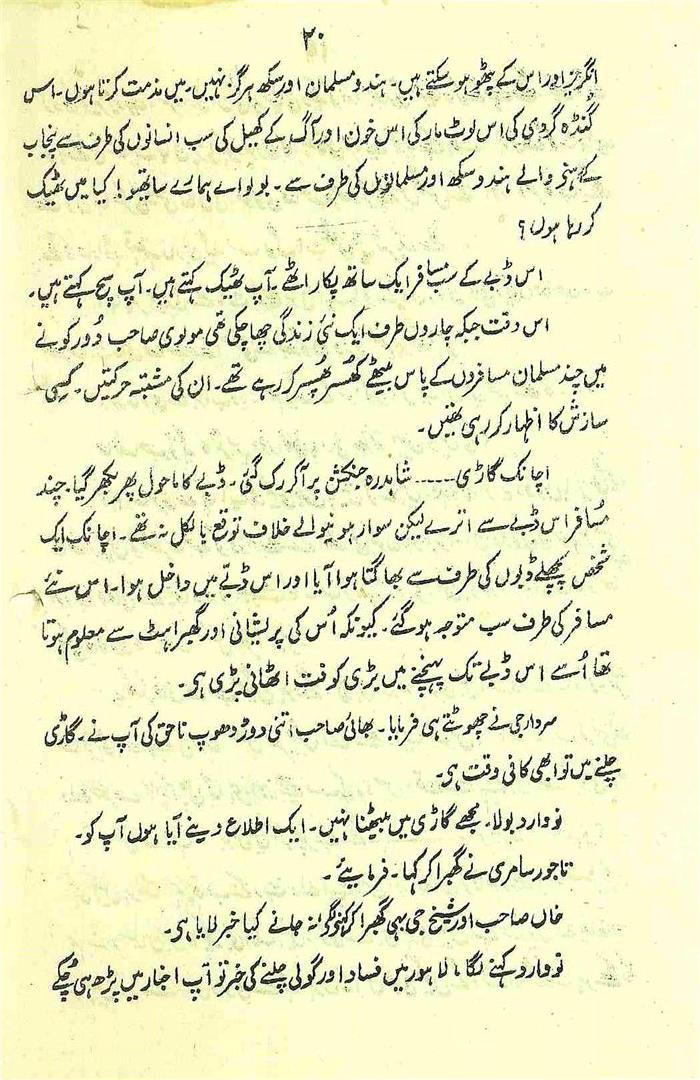 ۲۰
انگریز اور اس کے پٹھو ہو سکتے ہیں۔ ہندو مسلمان اور سکھ ہرگز نہیں۔ میں مذمت کرتا ہوں۔ اس
گنڈہ گردی کی اس لوٹ مار کی اس خون اور آگ کے کھیل کی سب انسانوں کی طرف سے پنجاب
کے رہنے والے ہندو سکھ اور مسلمانوں کی طرف سے۔ بولو اے ہمارے ساتھیو! کیا میں ٹھیک
کر رہا ہوں؟
اس ڈبے کے سب مسافر ایک ساتھ پکار اٹھے۔ آپ ٹھیک کہتے ہیں۔ آپ سچ کہتے ہیں۔
اس وقت جبکہ چاروں طرف ایک نئی زندگی چھا چکی تھی مولوی صاحب دُور کونے
میں چند مسلمان مسافروں کے پاس بیٹھے کھُسر پھُسر کر رہے تھے۔ ان کی مشتبہ حرکتیں۔ کِسی
سازش کا اظہار کر رہی تھیں۔
اچانک گاڑی ...... شاہدرہ جنکشن پر آکر رک گئی۔ ڈبے کا ماحول پھر بکھر گیا۔ چند
مُسافر اس ڈبے سے اترے لیکن سوار ہونیوالے خلاف توقع بالکل نہ تھے۔ اچانک ایک
شخص پچھلے ڈبوں کی طرف سے بھاگتا ہوا آیا اور اس ڈبے میں داخل ہوا۔ اس نئے
مسافر کی طرف سب متوجہ ہو گئے۔ کیونکہ اُس کی پریشانی اور گھبراہٹ سے معلوم ہوتا
تھا اُسے اس ڈبے تک پہنچنے میں بڑی کوفت اٹھانی پڑی ہی۔
سردار جی نے چھوٹتے ہی فرمایا۔ بھائی صاحب اتنی دوڑ دھوپ ناحق کی آپ نے۔ گاڑی
چلنے میں تو ابھی کافی وقت ہی۔
نووارد بولا۔ مجھے گاڑی میں بیٹھنا نہیں۔ ایک اطلاع دینے آیا ہوں آپ کو۔
تاجور سامری نے گھبرا کر کہا۔ فرمایئے۔
خاں صاحب اور شیخ جی بھی گھبرا کر کہنے لگے نہ جانے کیا خبر لایا ہی۔
نووارد کہنے لگا، لاہور میں فساد اور گولی چلنے کی خبر تو آپ اخبار میں پڑھ ہی چُکے